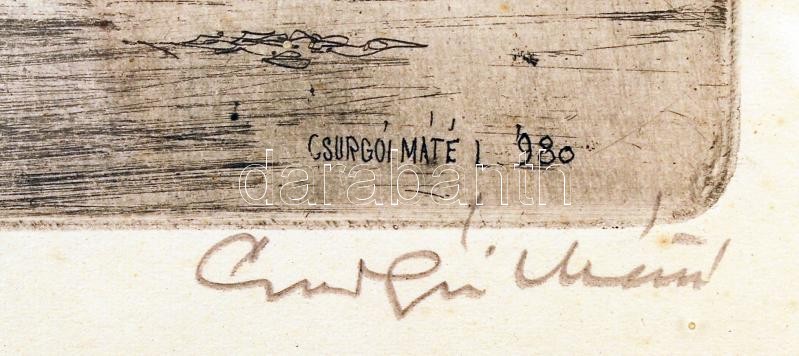 CSURGÓI MÁTÉ L 980
darabanth
Csurgói Máté